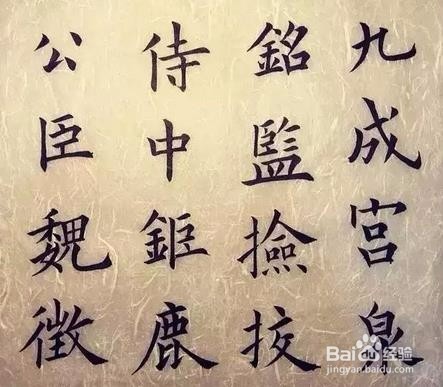 九成宮泉
銘監撿挍
侍中鉅鹿
公臣魏徵
Baidu经验
jingyan.baidu.com